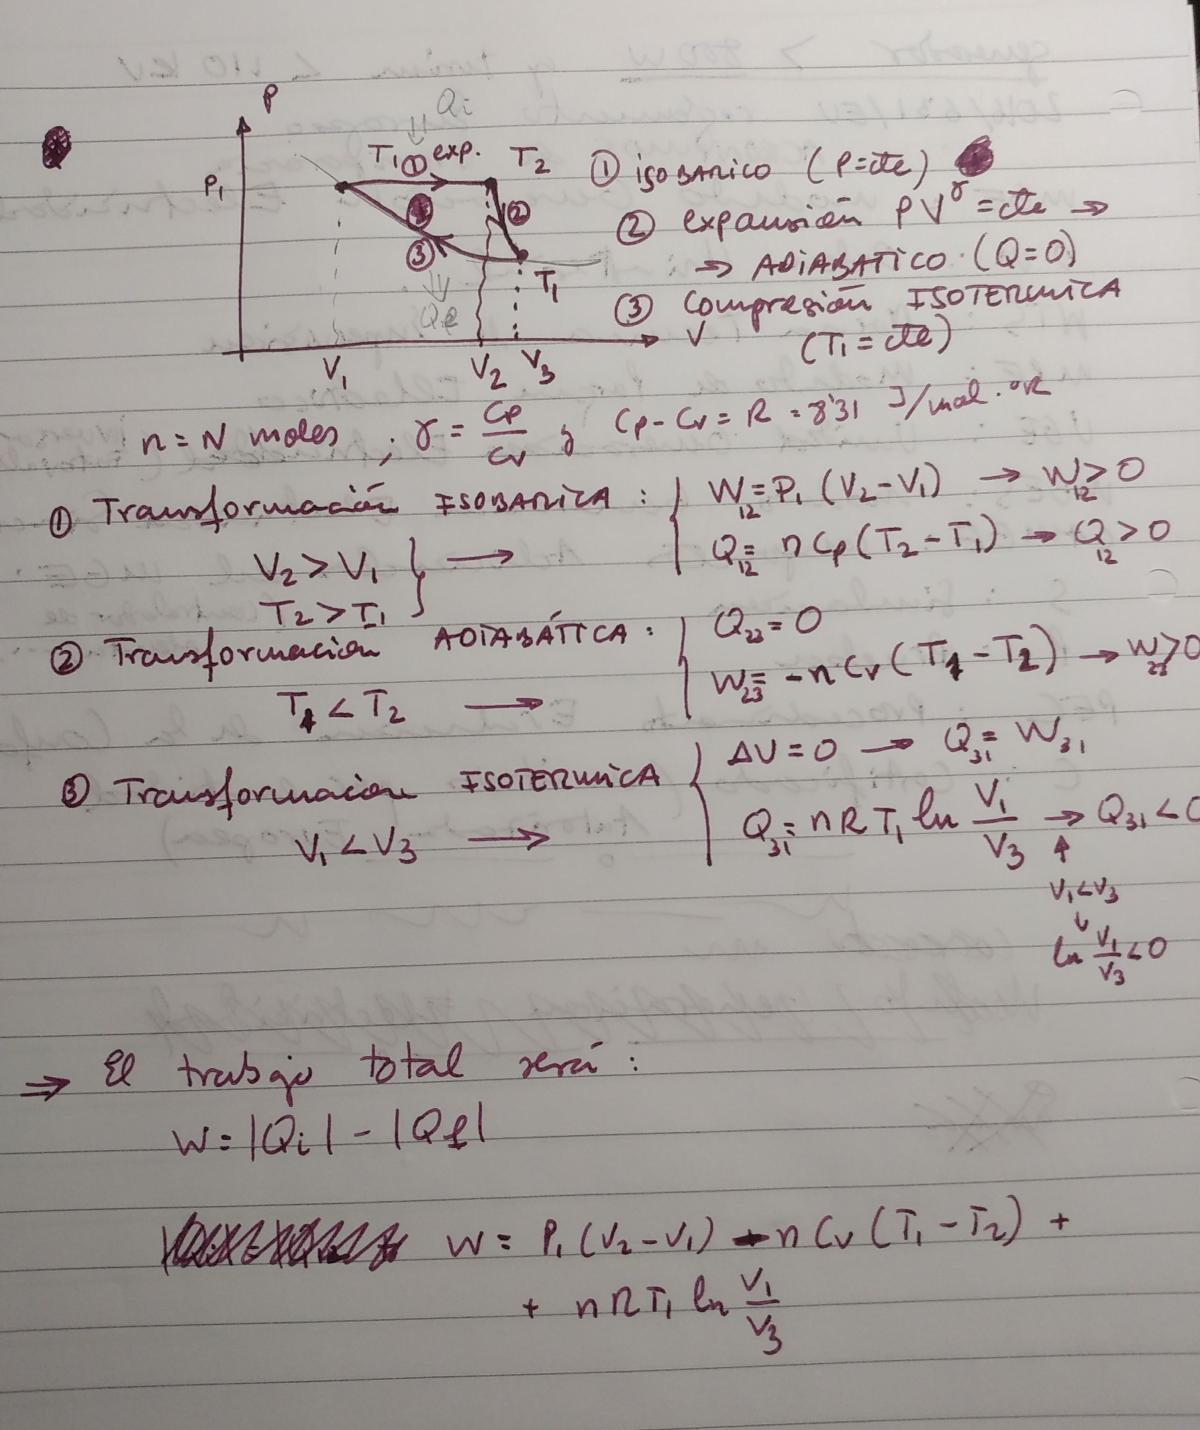 P
Qi
T₁ ① exp. T₂
P₁
② 
③
T₁
Qe
V
V₁ V₂ V₃
① ISOBARICO (P=cte)
② expansión PV^γ = cte ⇒
⇒ ADIABATICO (Q=0)
③ Compresión ISOTERMICA
(T₁ = cte)
n = N moles , γ = Cp/Cv y Cp - Cv = R = 8'31 J/mol·ºK
① Transformación ISOBARICA : W₁₂ = P₁ (V₂-V₁) → W₁₂ > 0
V₂ > V₁ → Q₁₂ = n Cp (T₂-T₁) → Q₁₂ > 0
T₂ > T₁
② Transformación ADIABÁTICA : Q₂₃ = 0
T₁ < T₂ → W₂₃ = -n Cv (T₁-T₂) → W₂₃ > 0
③ Transformación ISOTERMICA ΔU = 0 → Q₃₁ = W₃₁
V₁ < V₃ → Q₃₁ = n R T₁ ln V₁/V₃ → Q₃₁ < 0
↑
V₁ < V₃
↓
ln V₁/V₃ < 0
⇒ El trabajo total será :
W = |Qi| - |Qf|
W = P₁ (V₂-V₁) - n Cv (T₁-T₂) +
+ n R T₁ ln V₁/V₃